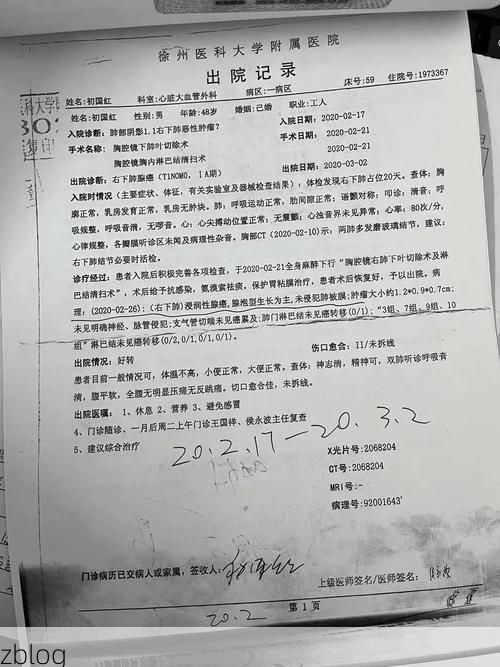 徐州医科大学附属医院
出院记录
姓名:初国红 科室:心脏大血管外科 病区:一病区 床号:59 住院号:1973367
姓名:初国红 性别:男 年龄:48岁 婚姻:已婚 职业:工人
入院诊断:肺部阴影1.1右下肺恶性肿瘤? 入院日期:2020-02-17
手术名称:胸腔镜下肺叶切除术 手术日期:2020-02-21
胸腔镜胸内淋巴结清扫术 2020-02-21
出院诊断:右下肺腺癌(T1N0M0,ⅠA期) 出院日期:2020-03-02
入院时情况(主要症状、体征,有关实验室及器械检查结果):体检发现右下肺占位20天。查体:胸
廓正常,乳房发育正常,乳房无肿块。肺:呼吸运动正常,肋间隙正常;语颤对称;叩诊:清音;呼
吸规整,呼吸音清,无啰音。心:心尖搏动位置正常;无震颤;心浊音界未见异常;心率:80次/分,
心律规整,各瓣膜听诊区未闻及病理性杂音。胸部CT(2020-02-10)示:两肺多发磨玻璃结节,建议:
右下肺结节必要时活检。
诊疗经过:患者入院后积极完善各项检查,于2020-02-21全身麻醉下行“胸腔镜右肺下叶切除术及淋
巴结清扫术”,术后给予抗感染,氨溴索祛痰,保护胃粘膜治疗,患者术后恢复好,予以出院。病
理:(2020-02-26):(右下肺)浸润性腺癌,腺泡型生长为主,未侵犯肺被膜;肿瘤大小约1.2*0.9*0.7cm;
未见明确神经、脉管侵犯;支气管切端未见癌累及;肺门淋巴结未见癌转移(0/1);“3组、7组、9组、10
组”淋巴结未见癌转移(0/2,0/1,0/1,0/1)。
出院情况:好转 伤口愈合:II/未拆线
患者目前一般情况可,体温不高,小便正常,大便正常。查体:神志清,精神可,双肺听诊呼吸音
清,腹平软,全腹无明显压痛无反跳痛。切口愈合佳,未拆线。
出院医嘱:1、休息 2、营养 3、避免感冒
4、门诊随诊、一月后周二上午门诊王国祥、侯永波主任复查
5、建议综合治疗
20.2.17—20.3.2
X光片号:2068204
CT号:2068204
MRI号:-
病理号:92001643
门诊病历已交病人或家属,签收人:
上级医师签名/医师签名:
第1页
20.2
zblog